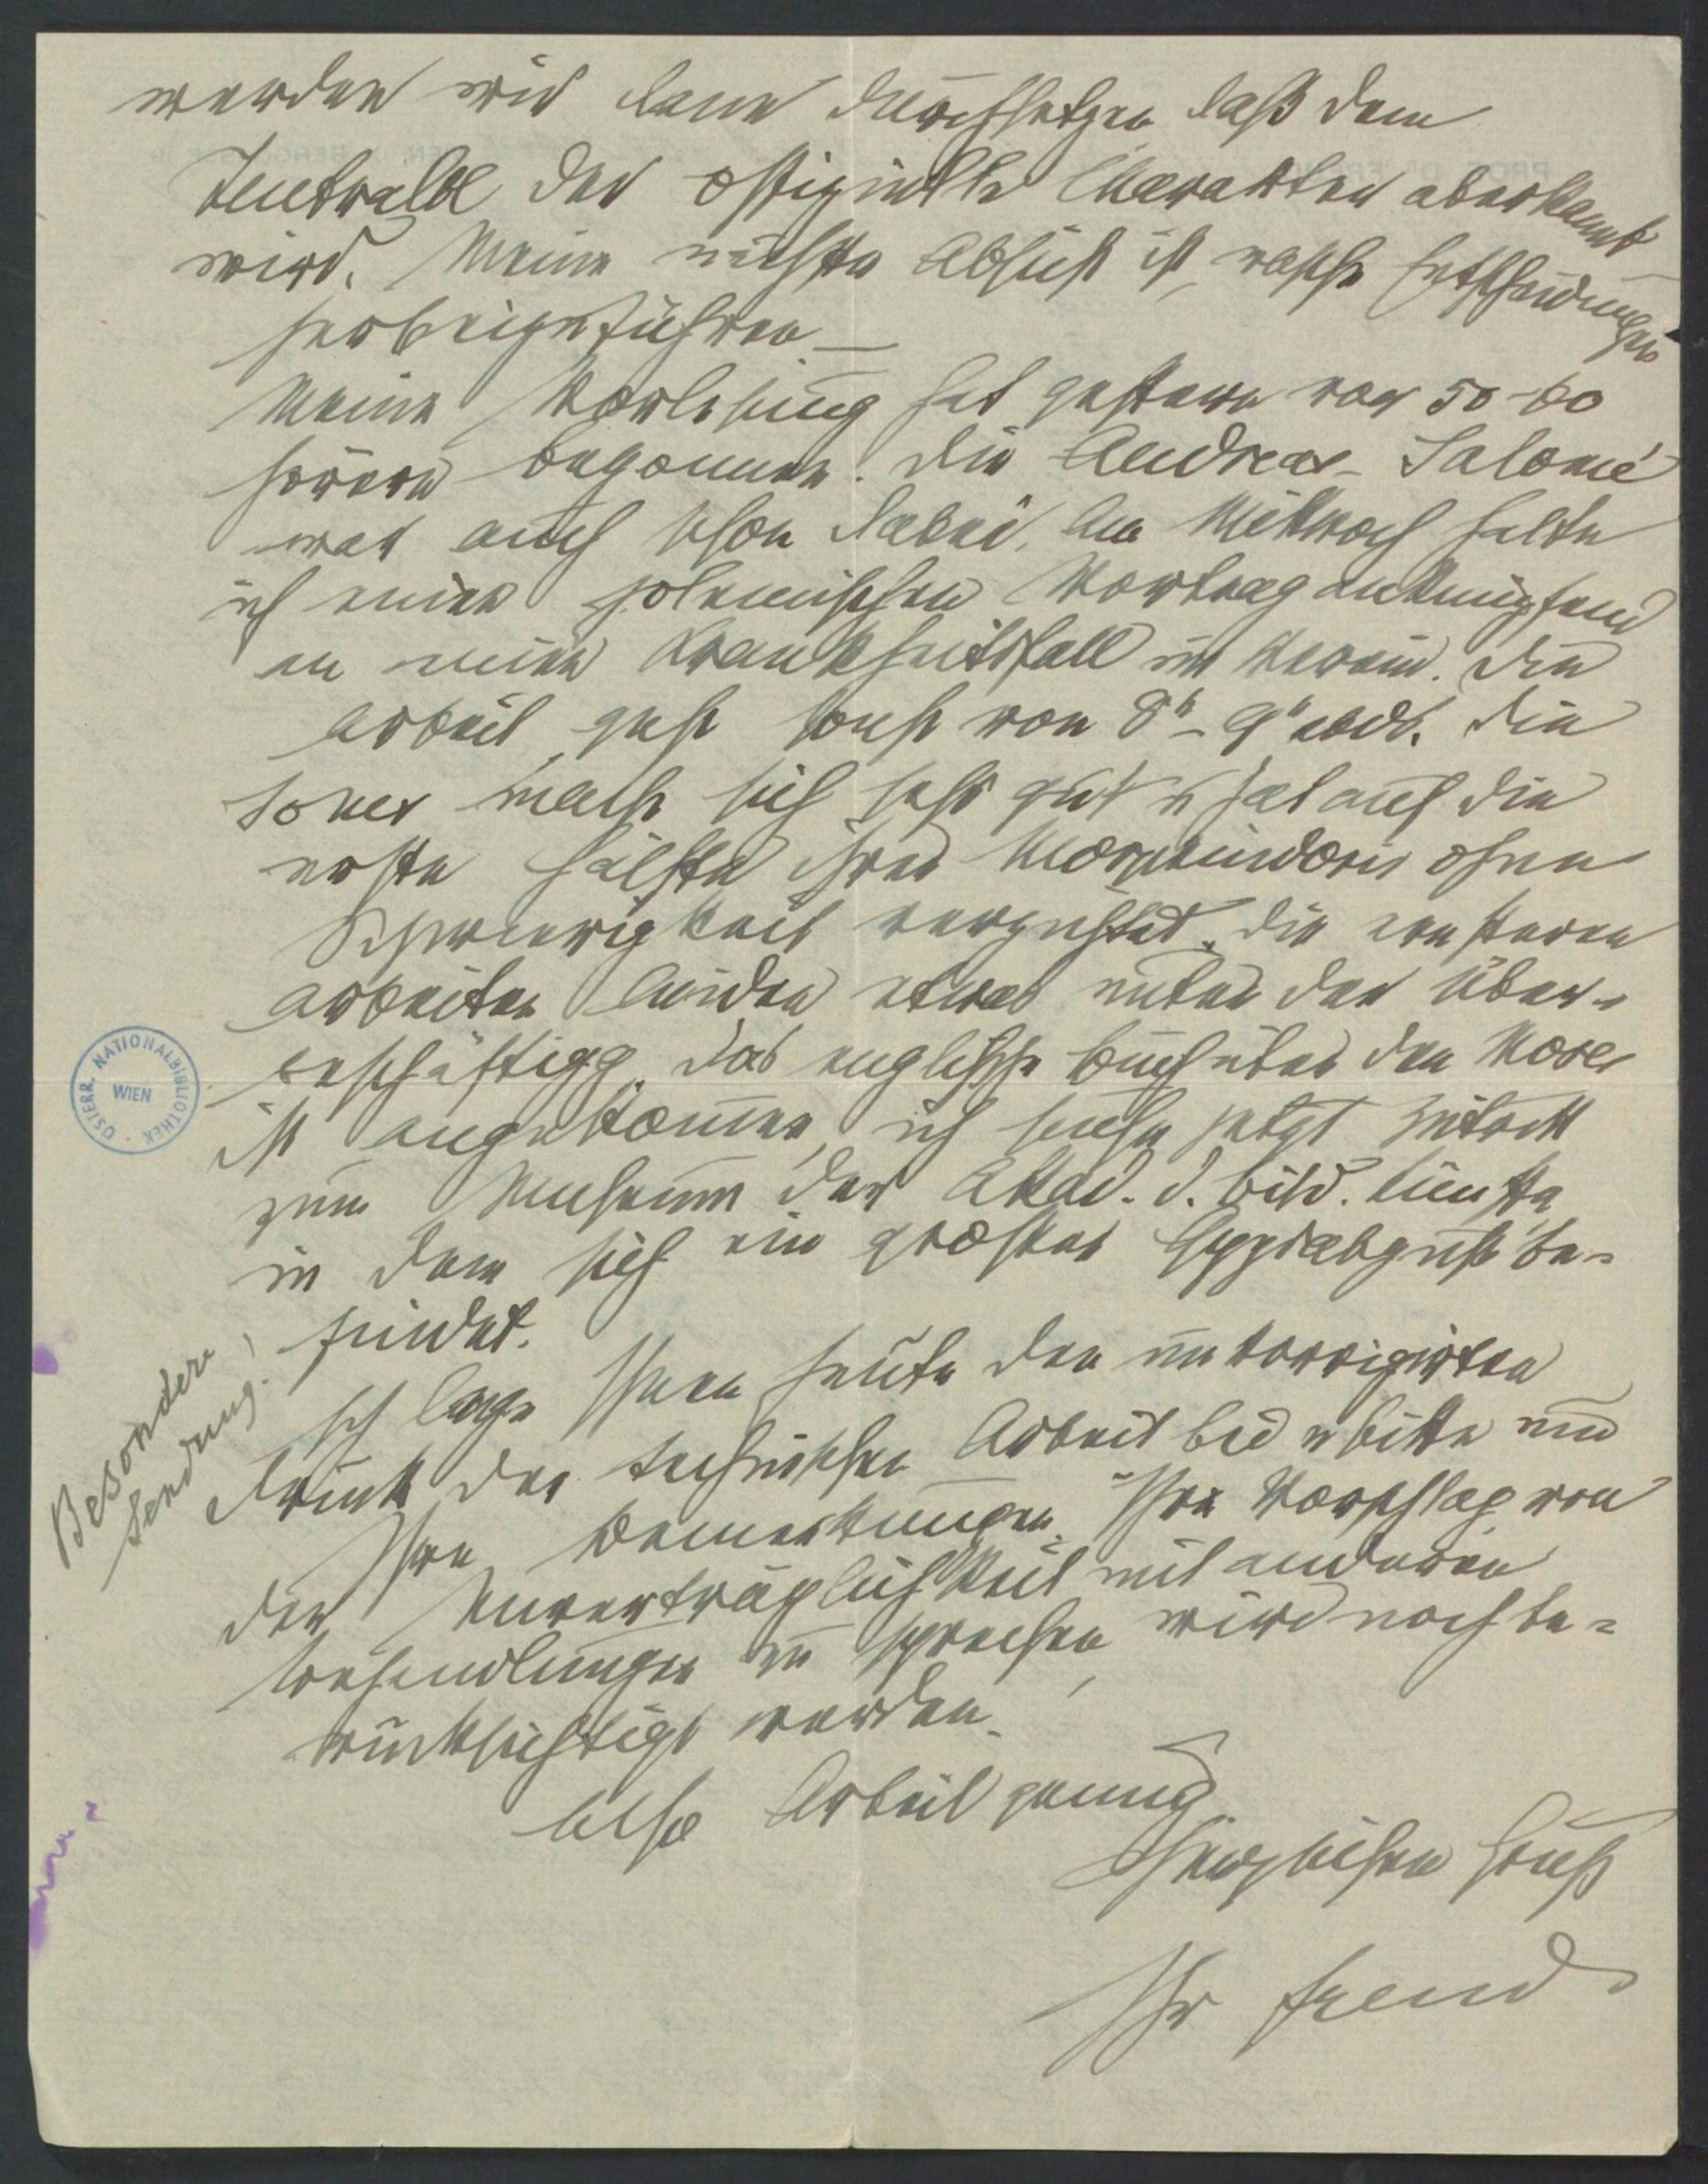 werden wir dann durchsetzen, daß dem
Zentralbl der offizielle Charakter aberkannt
wird. Meine nächste Absicht ist, rasche Entscheidungen
herbeizuführen —
Meine Vorlesung hat gestern vor 50–60
Hörern begonnen. Die Andreas-Salomé
war auch schon dabei. Am Mittwoch halte
ich einen polemischen Vortrag anknüpfend
an einen Krankheitsfall im Verein. Die
Arbeit geht sonst von 8h – 9h abds. Die
Loe macht sich sehr gut u hat auch die
erste Hälfte ihres Morphindosis ohne
Schwierigkeit verzichtet. Die ernsteren
Arbeiten leiden etwas unter der Über-
beschäftigg. Das englische Buch über den Moses
ist angekommen, ich suche jetzt Zutritt
zum Museum der Akad. d. bild. Künste
in dem sich ein großer Gypsabguß be-
findet.
Ich lege Ihnen heute den unkorrigirten
Druck der technischen Arbeit bei u bitte um
Ihre Bemerkungen. Ihr Vorschlag von
der Unverträglichkeit mit anderen
Behandlungen zu sprechen, wird noch be-
rücksichtigt werden.
Also Arbeit genug
Herzlichen Gruß
Ihr Freud
Besondere
Sendung!
ÖSTERR. NATIONALBIBLIOTHEK
WIEN